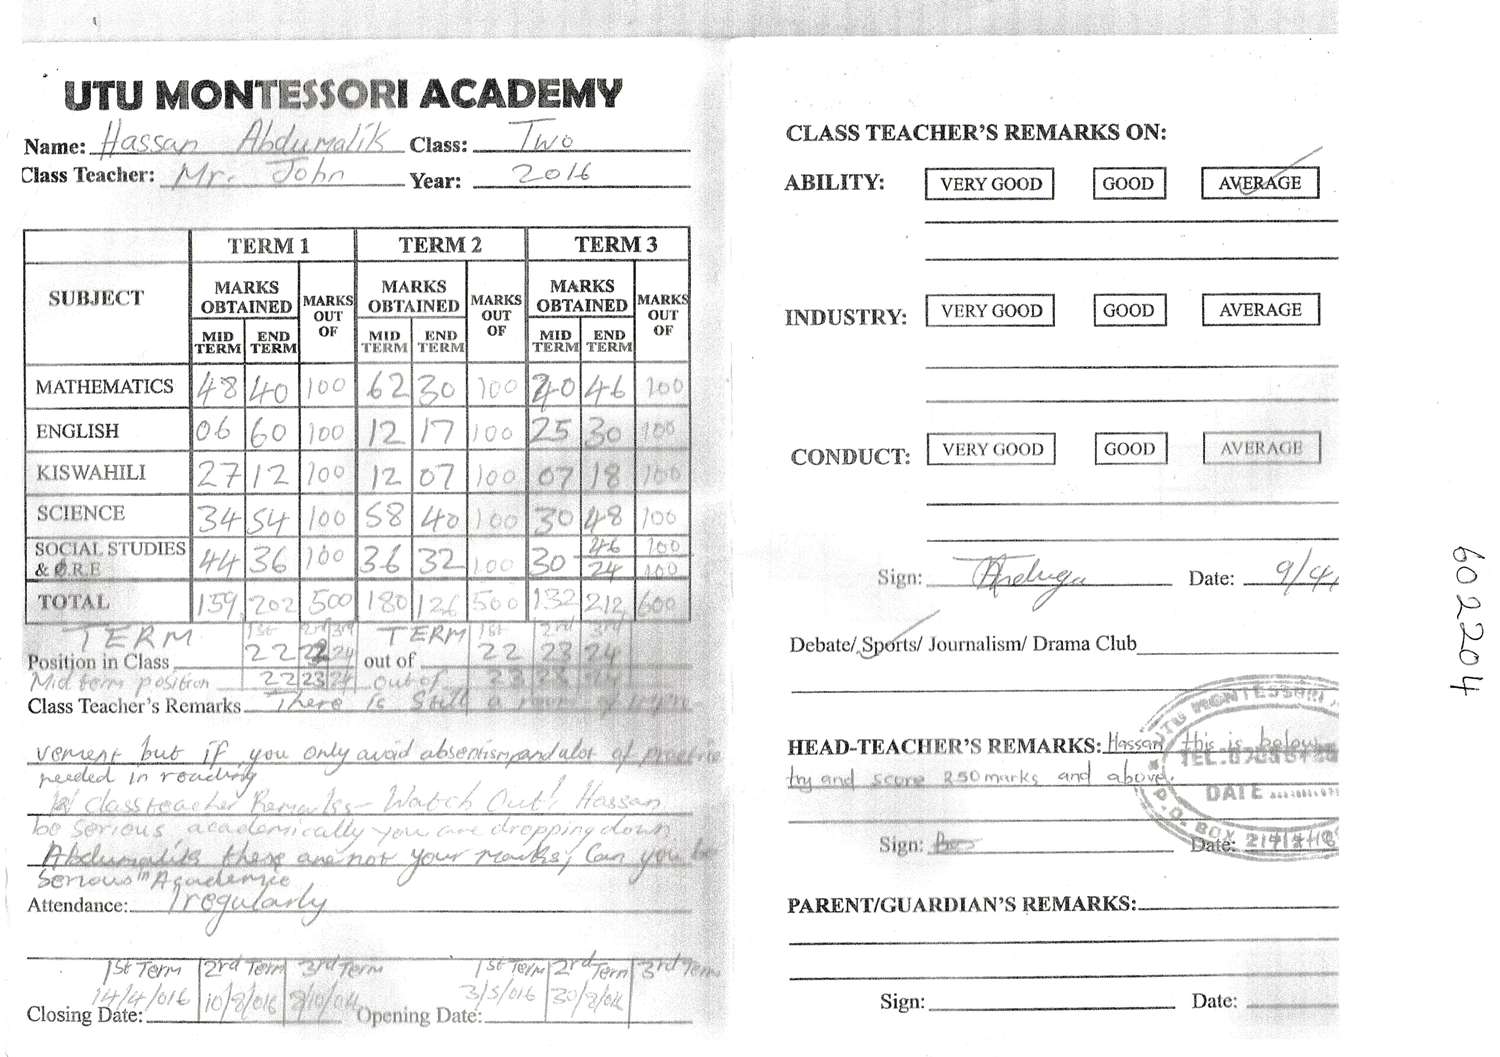 UTU MONTESSORI ACADEMY
Name: Hassan Abdumalik Class: Two
Class Teacher: Mr. John Year: 2016
TERM 1 TERM 2 TERM 3
SUBJECT MARKS OBTAINED MARKS OUT OF MARKS OBTAINED MARKS OUT OF MARKS OBTAINED MARKS OUT OF
MID TERM END TERM MID TERM END TERM MID TERM END TERM
MATHEMATICS 48 40 100 62 30 100 40 46 100
ENGLISH 06 60 100 12 17 100 25 30 100
KISWAHILI 27 12 100 12 07 100 07 18 100
SCIENCE 34 54 100 58 40 100 30 48 100
SOCIAL STUDIES 44 36 100 36 32 100 30 46 100
& C.R.E 24 100
TOTAL 159 202 500 180 126 500 132 212 600
TERM 1st 2nd 3rd TERM 1st 2nd 3rd
Position in Class 22 24 out of 22 23 24
Mid term position 22 23 24 out of 23 23 24
Class Teacher's Remarks There is Still a
vement but if you only avoid absentism and alot of practice
needed in reading
classteacher Remarks - Watch Out! Hassan
be Serious academically you are dropping down
Abdumalik these are not your marks, Can you be
Serious in Academic
Attendance: Irregularly
1st Term 2nd Term 3rd Term 1st Term 2nd Term 3rd Term
Closing Date: 14/4/016 10/8/016 Opening Date: 3/5/016 30/8/016
CLASS TEACHER'S REMARKS ON:
ABILITY: VERY GOOD GOOD AVERAGE
INDUSTRY: VERY GOOD GOOD AVERAGE
CONDUCT: VERY GOOD GOOD AVERAGE
Sign: Date: 9/4/
Debate/ Sports/ Journalism/ Drama Club
UTU MONTESSORI
HEAD-TEACHER'S REMARKS: Hassan this is below
TEL:
try and score 250 marks and above.
DATE
P.O. BOX
Sign: Date:
PARENT/GUARDIAN'S REMARKS:
Sign: Date:
602204